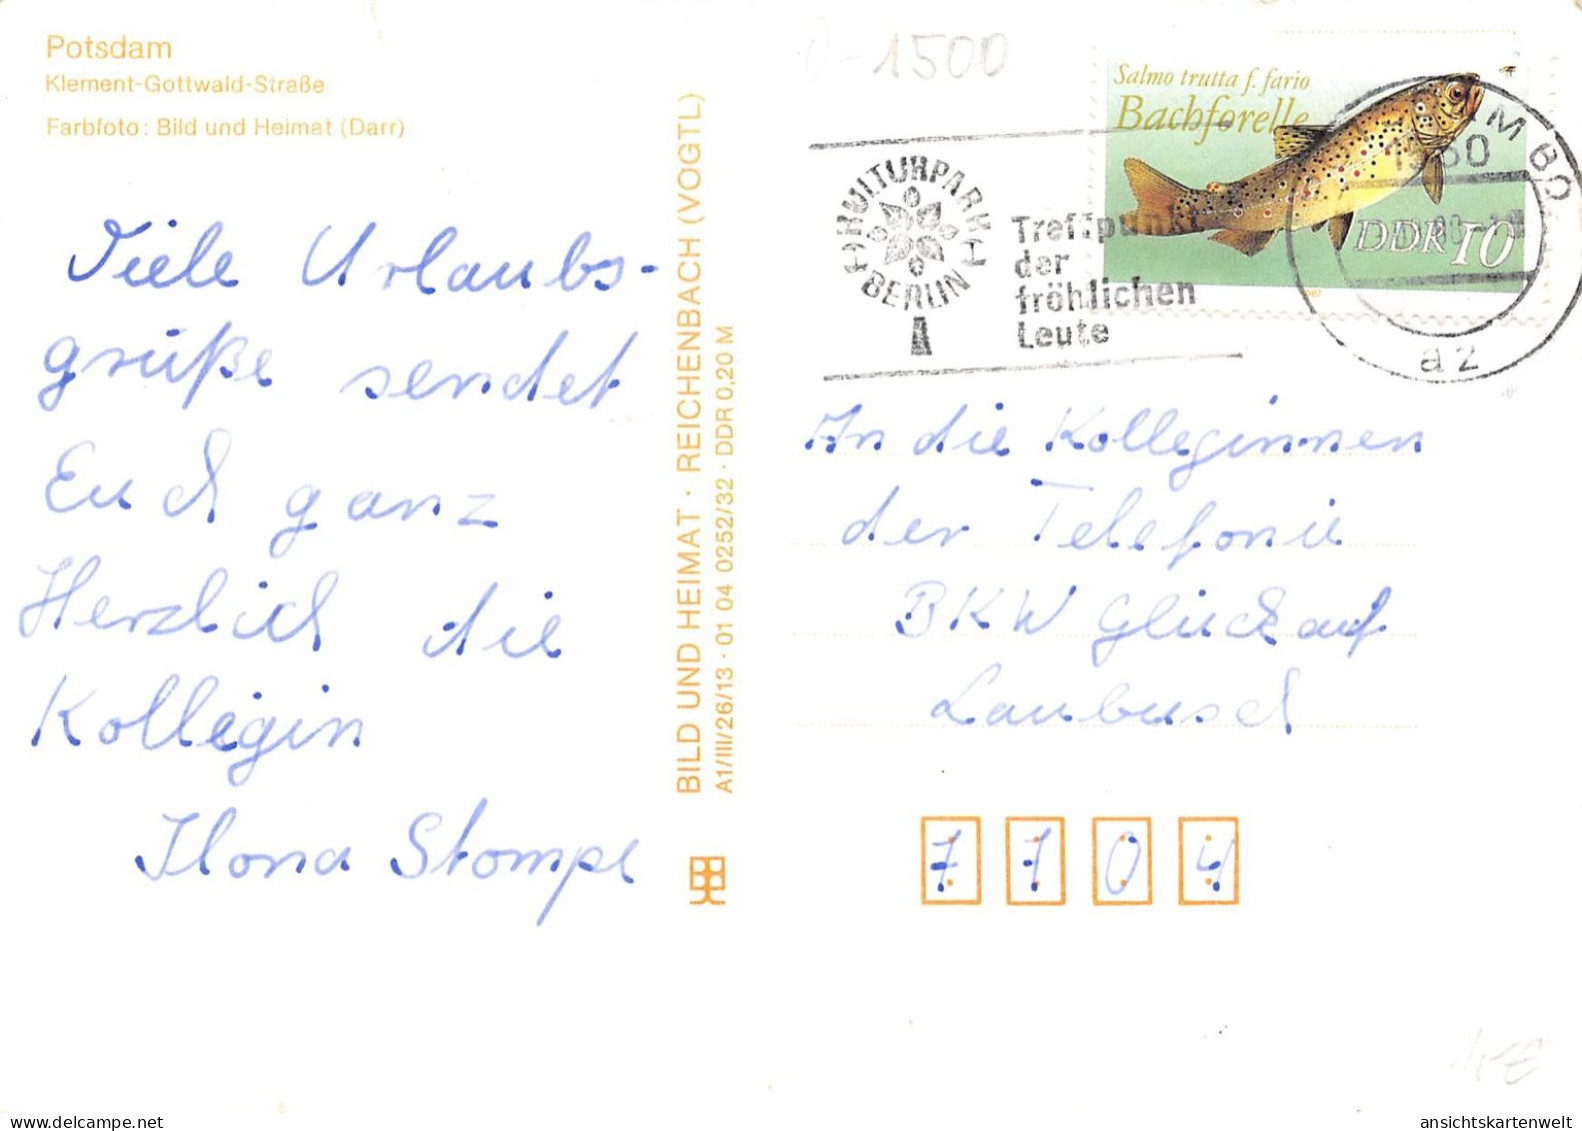 Potsdam
Klement-Gottwald-Straße
Farbfoto: Bild und Heimat (Darr)
Viele Urlaubs-
grüße sendet
Euch ganz
Herzlich die
Kollegin
Ilona Stompe
BILD UND HEIMAT · REICHENBACH (VOGTL)
A1/III/26/13 · 01 04 0252/32 · DDR 0,20 M
1500
Salmo trutta f. fario
Bachforelle
DDR 10
KULTURPARK
BERLIN
Treffpunkt
der
fröhlichen
Leute
az
An die Kolleginnen
der Telefonie
BKW Glückauf
Laubusch
7704
ansichtskartenwelt